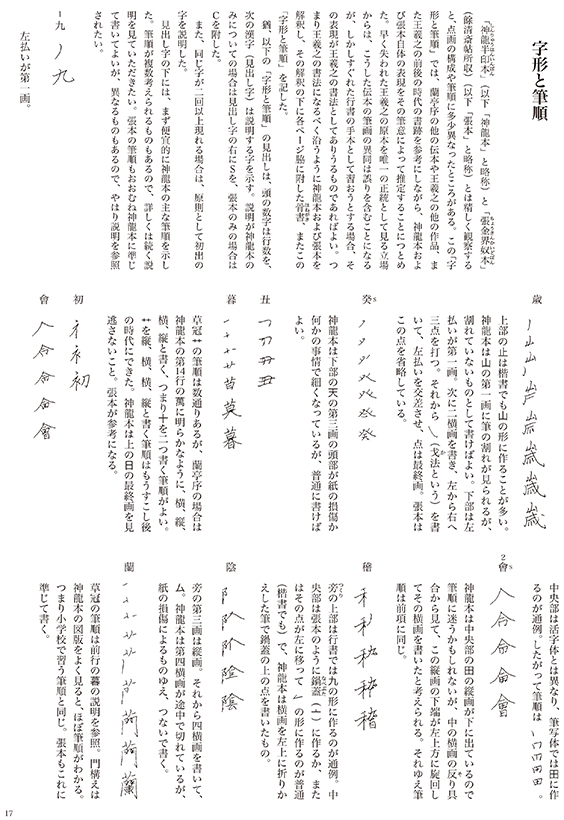 字形と筆順
「神龍半印本」(以下「神龍本」と略称)と「張金界奴本」
(餘清斎帖所収)(以下「張本」と略称)とは精しく観察する
と、点画の構成や筆順に多少異なったところがある。この「字
形と筆順」では、蘭亭序の他の伝本や王羲之の他の作品、ま
た王羲之の前後の時代の書跡を参考にしながら、神龍本およ
び張本自体の表現をその筆意によって推定することにつとめ
た。早く失われた王羲之の原本を唯一の正統として見る立場
からは、こうした伝本の筆画の異同は誤りを含むことになる
が、しかしすぐれた行書の手本として習おうとする場合、そ
の表現が王羲之の書法としてありうるものであればよい。つ
まり王羲之の書法になるべく沿うように神龍本および張本を
解釈し、その解釈の下に各ページ脇に附した骨書、またこの
「字形と筆順」を記した。
猶、以下の「字形と筆順」の見出しは、頭の数字は行数を、
次の漢字(見出し字)は説明する字を示す。説明が神龍本の
みについての場合は見出し字の右にS を、張本のみの場合は
C を附した。
また、同じ字が二回以上現れる場合は、原則として初出の
字を説明した。
見出し字の下には、まず便宜的に神龍本の主な筆順を示し
た。筆順が複数考えられるものもあるので、詳しくは続く説
明を見ていただきたい。張本の筆順もおおむね神龍本に準じ
て書いてよいが、異なるものもあるので、やはり説明を参照
されたい。
1 九 ノ 九
左払いが第一画。
歳
上部の止は楷書でも山の形に作ることが多い。
神龍本は山の第一画に筆の割れが見られるが、
割れていないものとして書けばよい。下部は左
払いが第一画。次に二横画を書き、左から右へ
三点を打つ。それから㇂(戈法という)を書
いて、左払いを交差させ、点は最終画。張本は
この点を省略している。
癸 S
神龍本は下部の天の第三画の頭部が紙の損傷か
何かの事情で細くなっているが、普通に書けば
よい。
丑
暮
草冠艹の筆順は数通りあるが、蘭亭序の場合は
神龍本の第14行の萬に明らかなように、横、縦、
横、縦と書く、つまり十を二つ書く筆順がよい。
艹を縦、横、横、縦と書く筆順はもうすこし後
の時代にできた。神龍本は上の日の最終画を見
逃さないこと。張本が参考になる。
初
會
中央部は活字体とは異なり、筆写体では田に作
るのが通例。したがって筆順は
2 會 S
神龍本は中央部の田の縦画が下に出ているので
筆順に迷うかもしれないが、中の横画の反り具
合から見て、この縦画の下端が左上方に旋回し
てその横画を書いたと考えられる。それゆえ筆
順は前項に同じ。
稽
旁の上部は行書では九の形に作るのが通例。中
央部は張本のように鍋蓋(亠)に作るか、また
はその点が左に移って の形に作るのが普通
(楷書でも)で、神龍本は横画を左上に折りか
えした筆で鍋蓋の上の点を書いたもの。
陰
旁の第三画は縦画。それから四横画を書いて、
ム。神龍本は第四横画が途中で切れているが、
紙の損傷によるものゆえ、つないで書く。
蘭
草冠の筆順は前行の暮の説明を参照。門構えは
神龍本の図版をよく見ると、ほぼ筆順がわかる。
つまり小学校で習う筆順と同じ。張本もこれに
準じて書く。
17